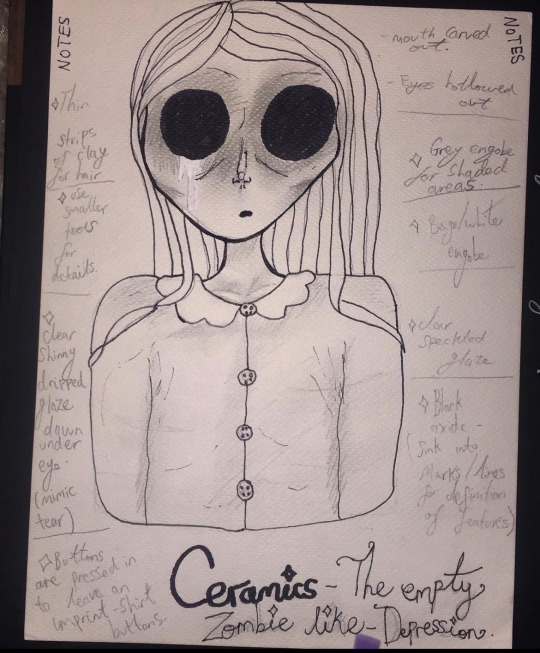 NOTES
✧ Thin
strips
of clay
for hair
✧ use
smaller
tools
for
details.
✧ clear
shinny
dripped
glaze
down
under
eye.
(mimic
tear)
✧ Buttons
are pressed in
to leave an
imprint-shirt
buttons.
NOTES
- mouth carved
out.
- Eyes hollowed
out
✧ Grey engobe
for shaded
areas.
✧ Beige/white
engobe
✧ clear
speckled
glaze
✧ Black
oxide -
(Sink into
Marks/lines
for definition
of features)
Ceramics - The empty
Zombie like - Depression.